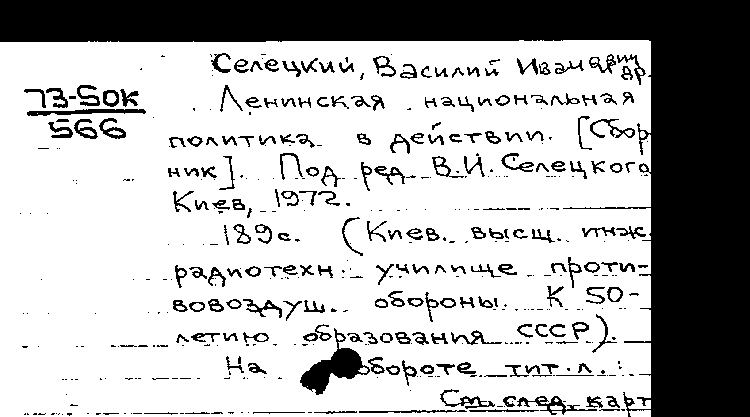 Селецкий, Василий Иванович
др.
73-50к
566
Ленинская национальная
политика в действии. [Сбор-
ник]. Под ред. В.И. Селецкого
Киев, 1972.
189с. (Киев. высш. инж.
радиотехн. училище проти-
вовоздуш. обороны. К 50-
летию образования СССР).
На обороте тит.л.:
См. след. карт